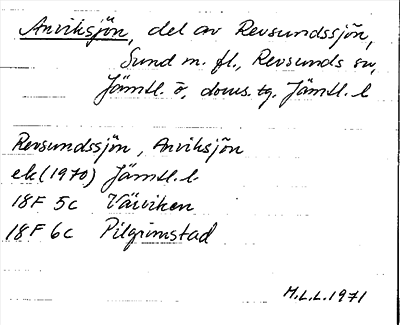 Anviksjön, del av Revsundssjön,
Sund m. fl., Revsunds sn,
Jämtl. ö, doms. tg. Jämtl. l
Revsundssjön, Anviksjön
ek (1970) Jämtl. l
18F 5c Väviken
18F 6c Pilgrimstad
M.L.L. 1971